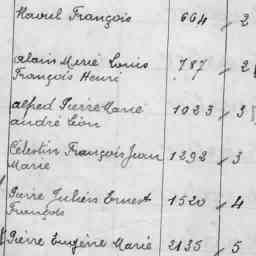 Raoul François 664 2
Alain Marie Louis 787 2
François Henri
Alfred Pierre Marie 1023 3
André Léon
Célestin François Jean 1292 3
Marie
Pierre Julien Ernest 1520 4
François
Pierre Eugène Marie 2135 5